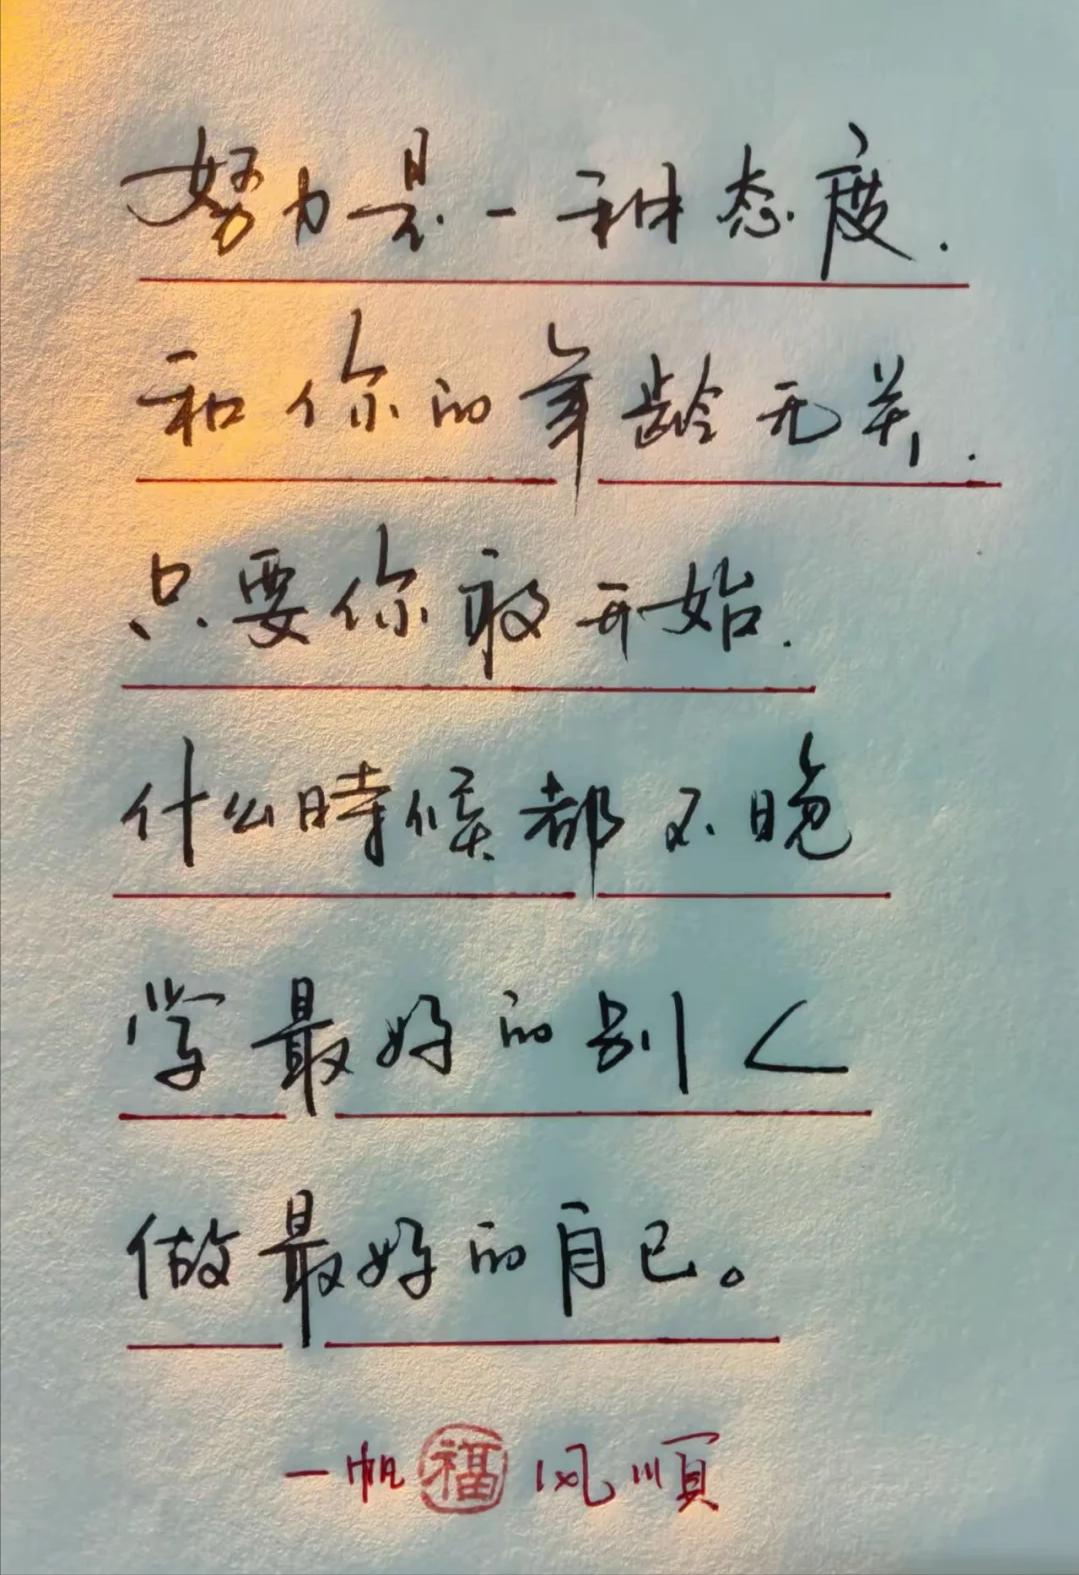 努力是一种态度.
和你的年龄无关.
只要你敢开始.
什么時候都不晚
学最好的别人
做最好的自己。
一帆福风順